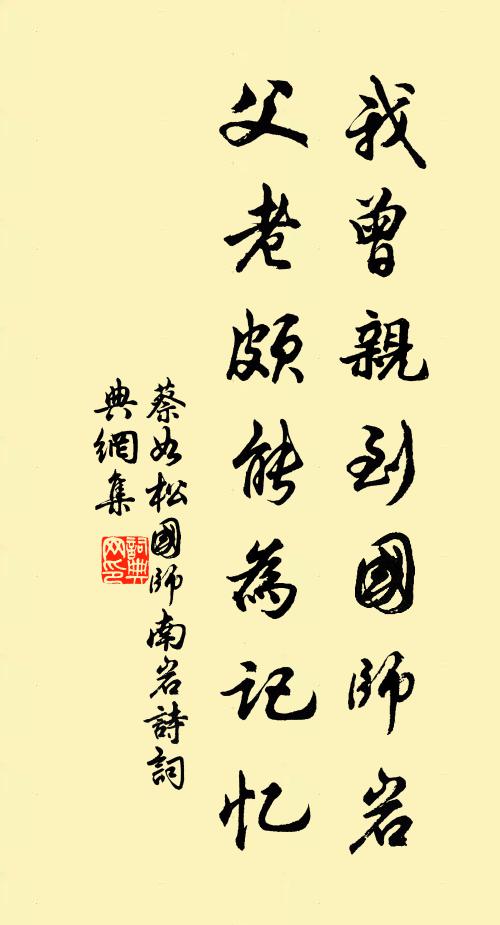 我曾親到國師岩
父老頗能為记忆
蔡如松國師南岩詩詞
典網集
詞典网印